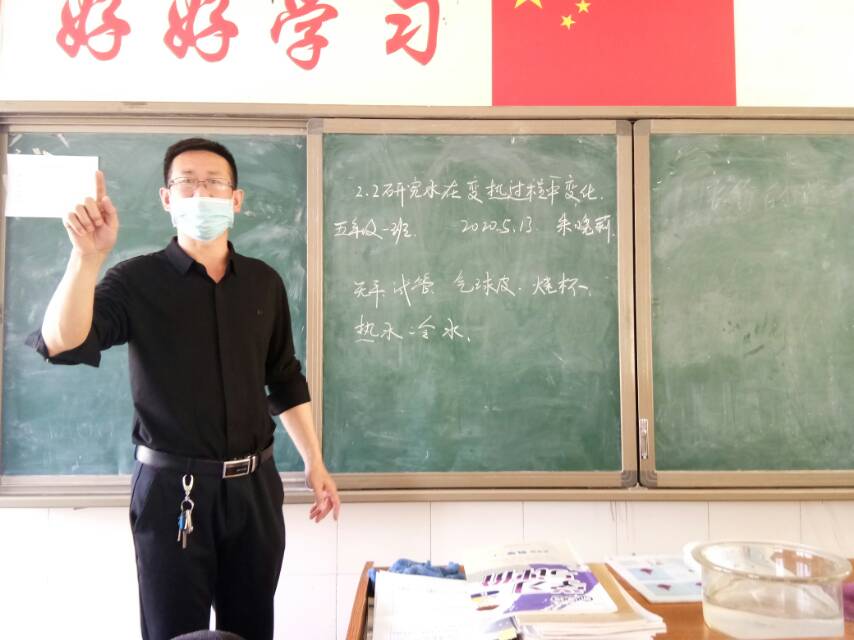 好好学习
2.2研究水在变热过程中变化.
五年级一班. 2020.5.13 朱晓莉.
天平、试管、气球皮、烧杯、
热水、冷水、